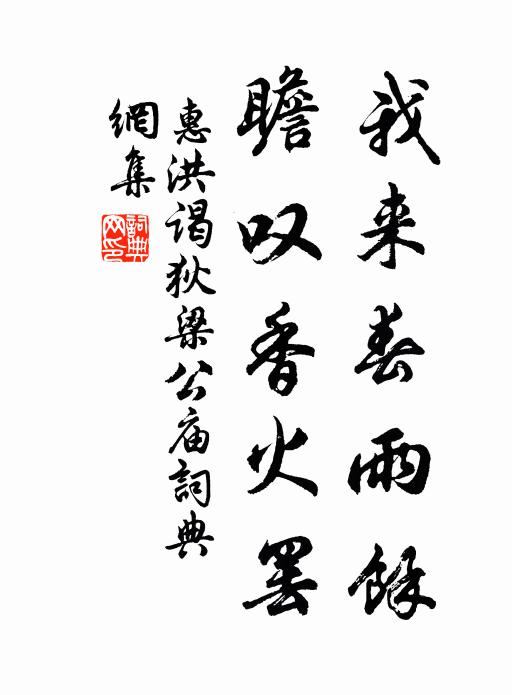 我来春雨餘
瞻叹香火罢
惠洪谒狄梁公庙詞典
網集
詞典网印